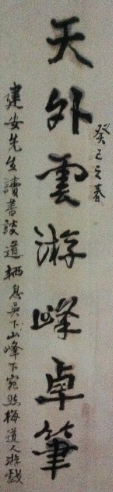 癸巳之春
天外雲游峰卓筆
建安先生讀書談道栖息吳下山峰下宛然梅道人游戲